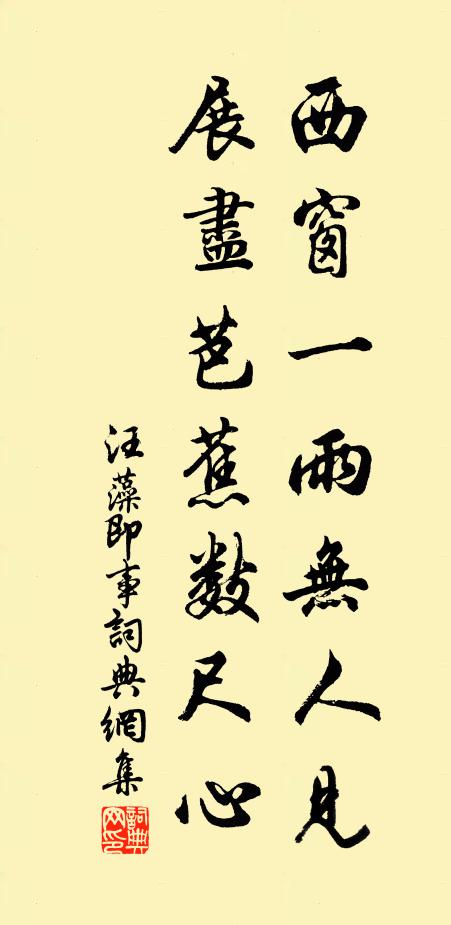 西窗一雨無人見
展盡芭蕉數尺心
汪藻即事詞典網集
詞典網印